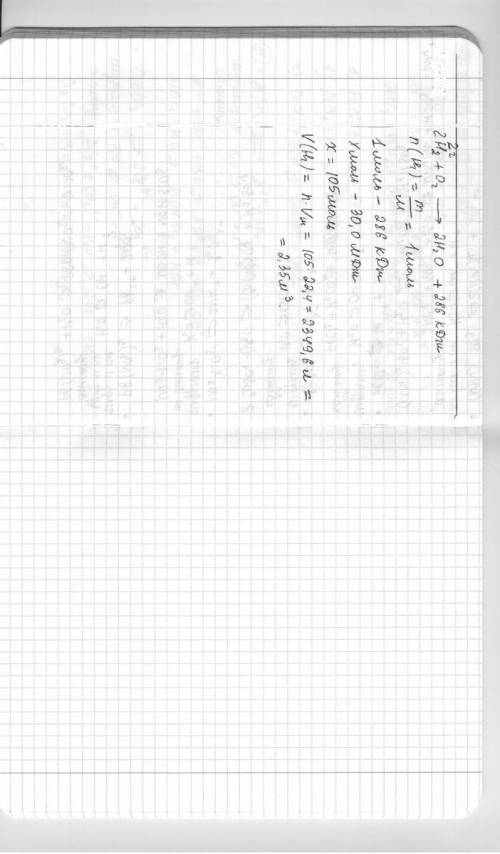 2г
2H₂ + O₂ ⟶ 2H₂O + 286 кДж
n(H₂) = m/M = 1 моль
1 моль – 286 кДж
x моль – 30,0 МДж
x = 105 моль
V(H₂) = n · Vm = 105 · 22,4 = 2349,6 л =
= 2,35 м³.